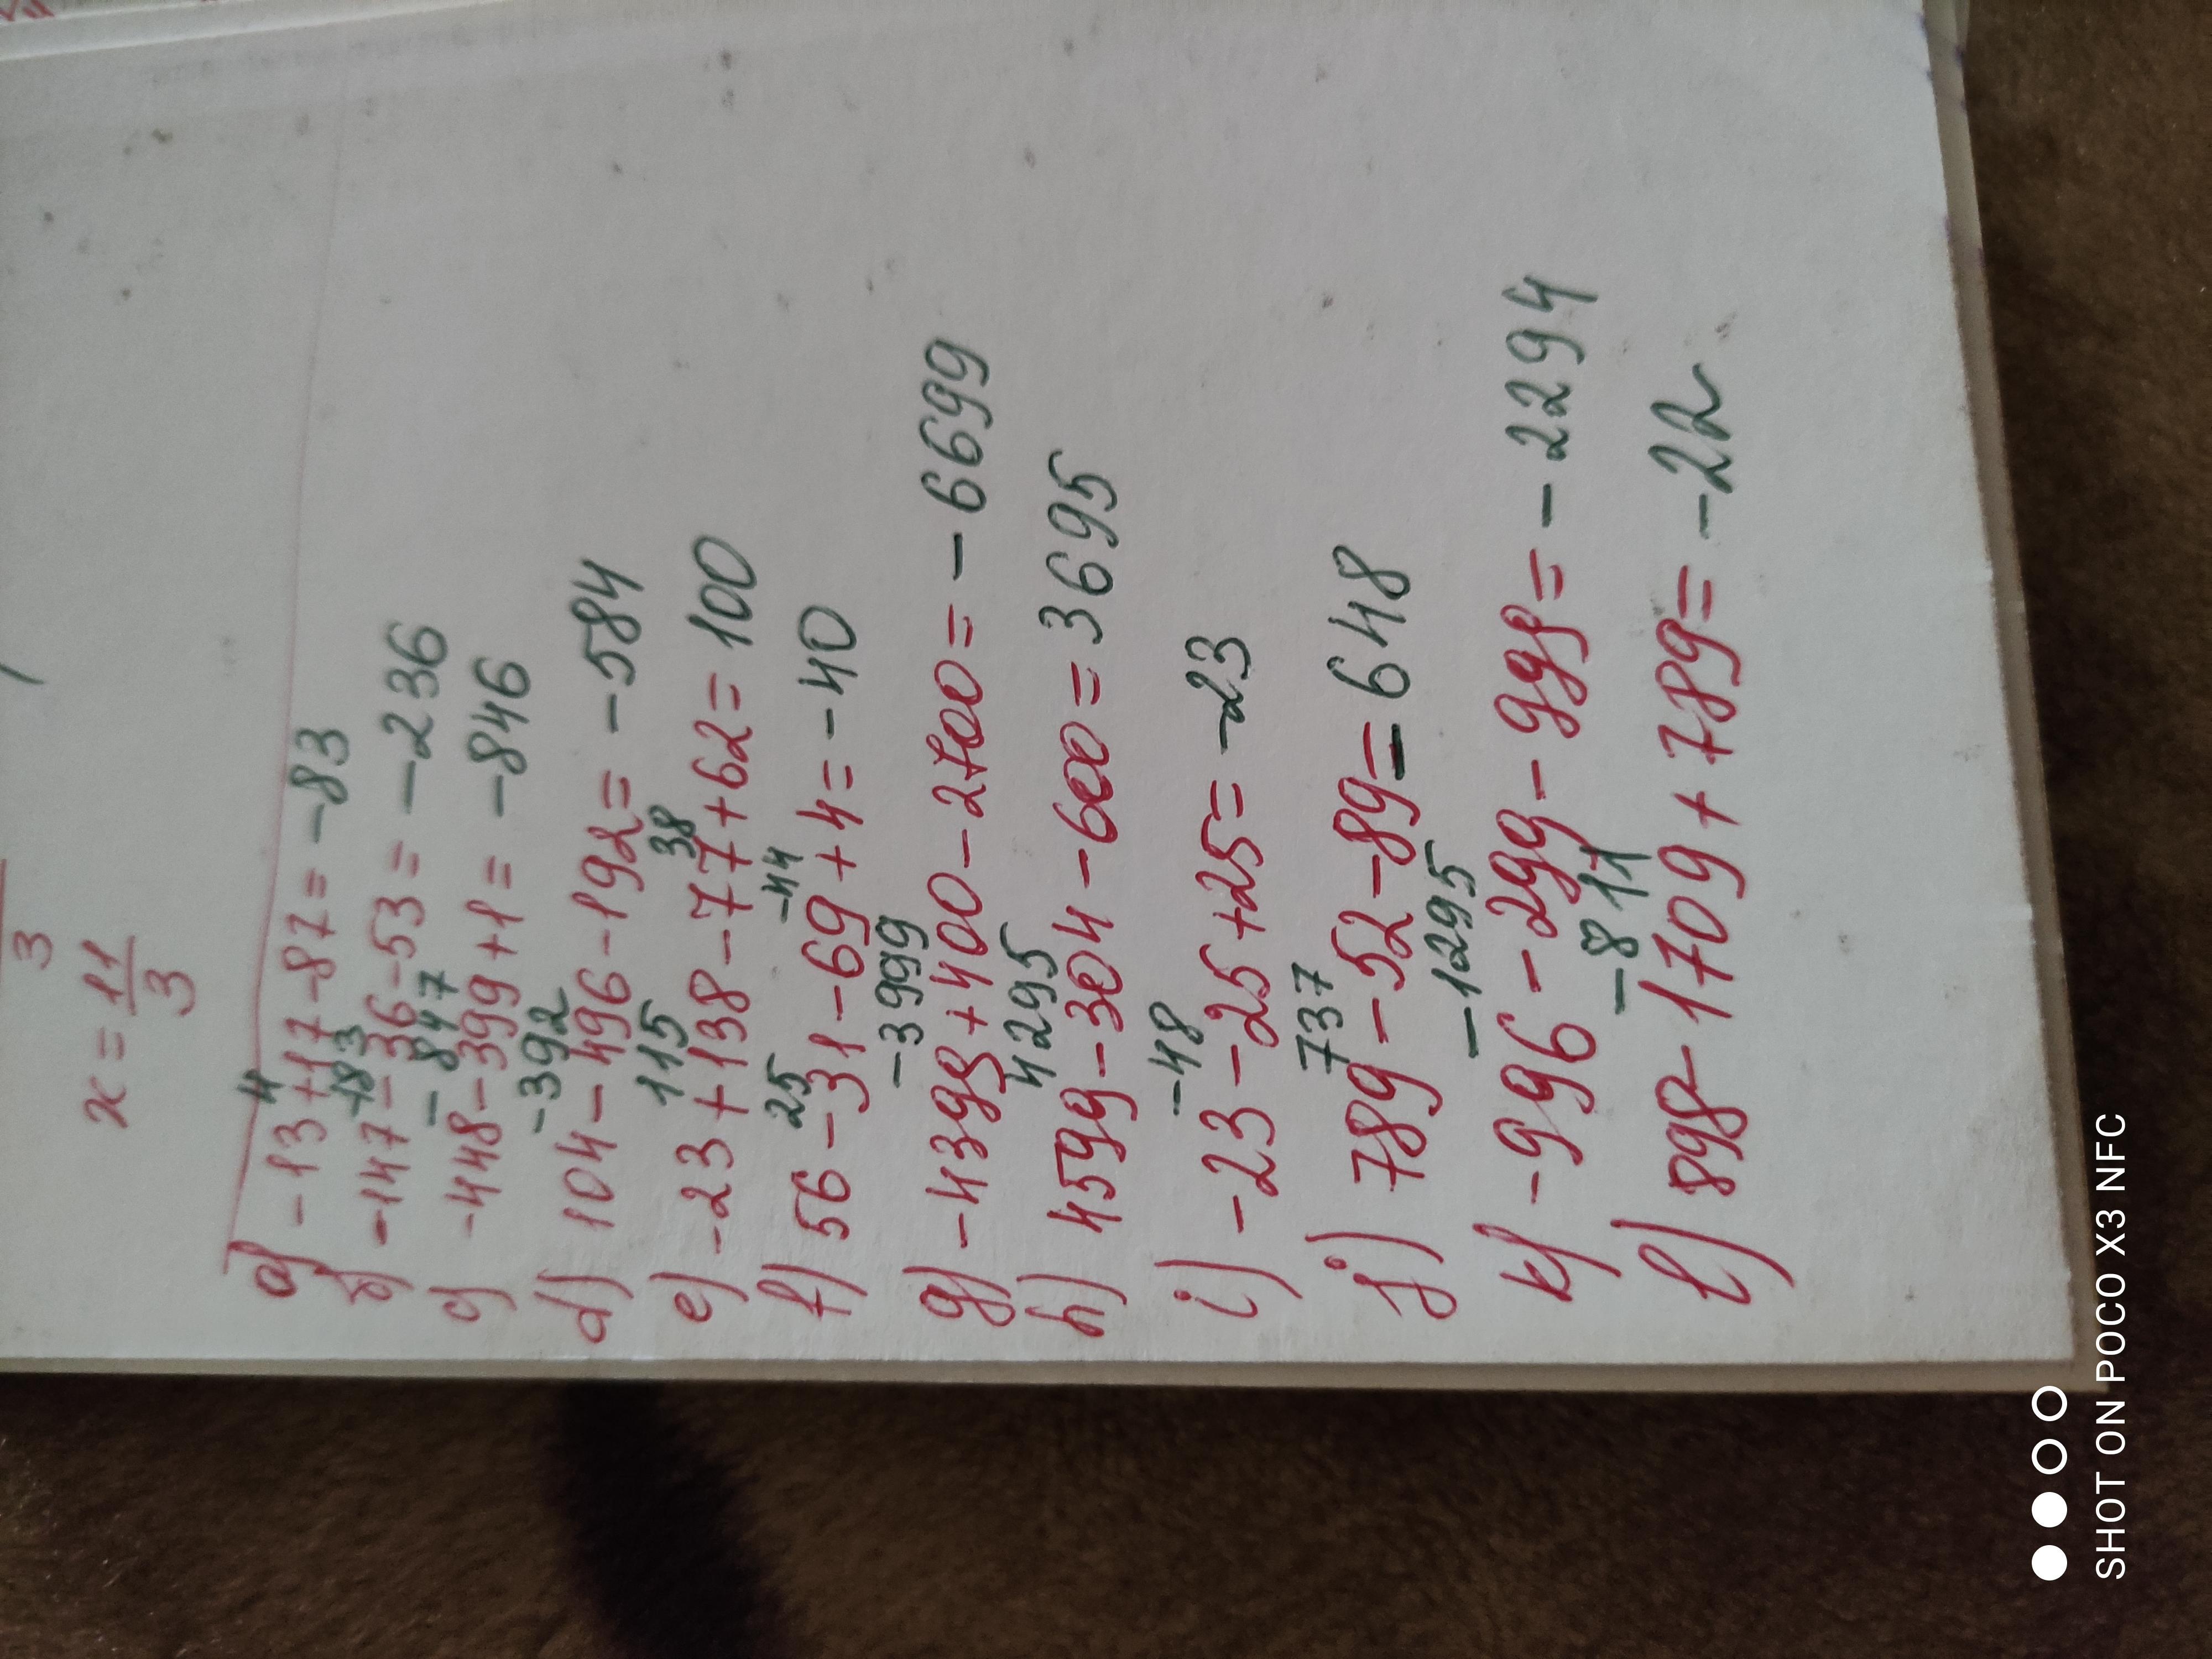 3
x = 11
3
4
a) -13+17-87= -83
-183
b) -147-36-53= -236
-847
c) -448-399+1= -846
-392
d) 104-496-192= -584
115 38
e) -23+138-77+62= 100
25 -44
f) 56-31-69+4= -40
-3999
g) -4399+400-2700= -6699
4295
h) 4599-304-600= 3695
-48
i) -23-25+25= -23
737
j) 789-52-89= 648
-1295
k) -996-299-999= -2294
-811
l) 898-1709+789= -22
SHOT ON POCO X3 NFC